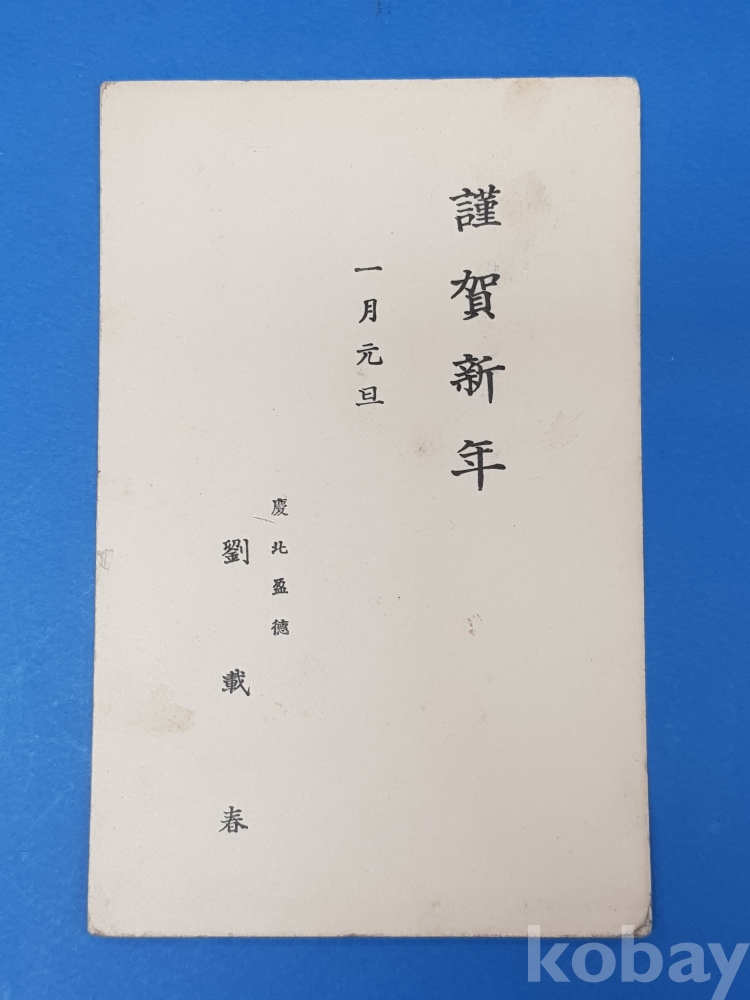 謹賀新年
一月元旦
慶北盈德
劉載春
kobay